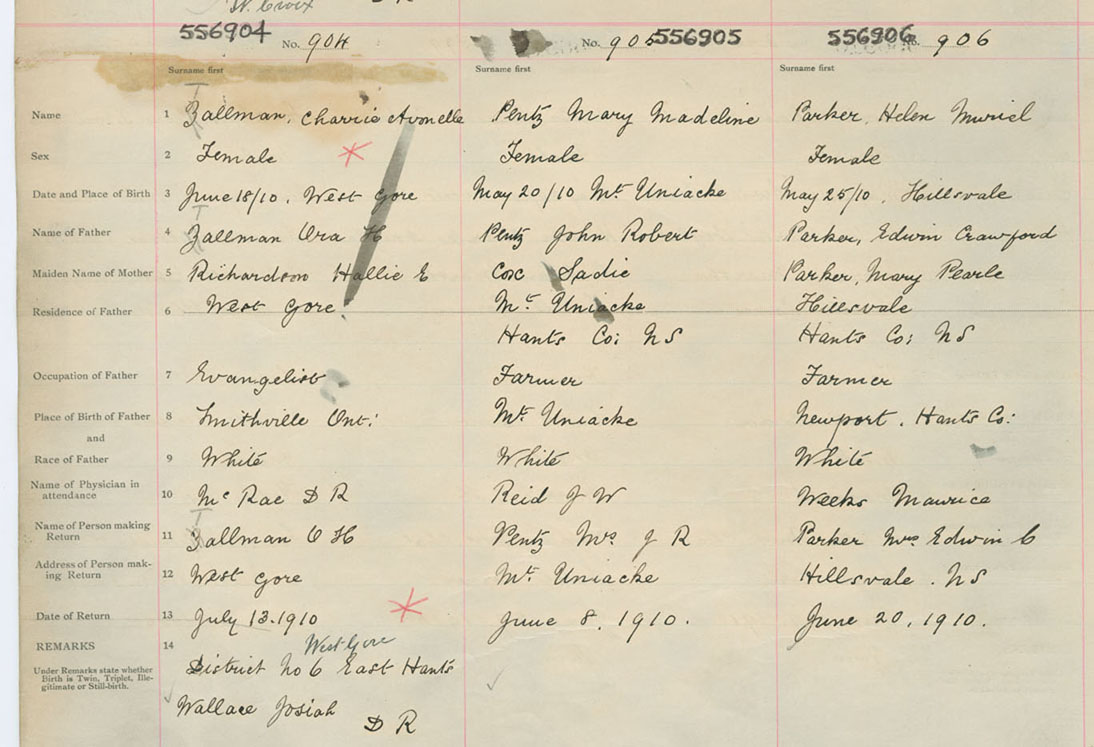 St. Croix
556904 No. 904
No. 905 556905
556906 No. 906
Surname first Surname first Surname first
Name 1 Zallman, Charrie Avonelle Pentz Mary Madeline Parker, Helen Muriel
Sex 2 Female Female Female
Date and Place of Birth 3 June 18/10. West Gore May 20/10 Mt. Uniacke May 25/10, Hillsvale
Name of Father 4 Zallman Ora H Pentz John Robert Parker, Edwin Crawford
Maiden Name of Mother 5 Richardson Hallie E Cox Sadie Parker, Mary Pearle
Residence of Father 6 West Gore. Mt. Uniacke Hillsvale
Hants Co: NS Hants Co: NS
Occupation of Father 7 Evangelist Farmer Farmer
Place of Birth of Father 8 Smithville Ont: Mt. Uniacke Newport. Hants Co:
and
Race of Father 9 White White White
Name of Physician in
attendance 10 McRae D R Reid J W Weeks Maurice
Name of Person making
Return 11 Zallman O H Pentz Mrs J R Parker Mrs Edwin C
Address of Person mak-
ing Return 12 West Gore Mt. Uniacke Hillsvale. NS
Date of Return 13 July 13. 1910 June 8, 1910. June 20, 1910.
REMARKS 14 West Gore
District No 6 East Hants
Under Remarks state whether
Birth is Twin, Triplet, Ille-
gitimate or Still-birth.
Wallace Josiah
D R